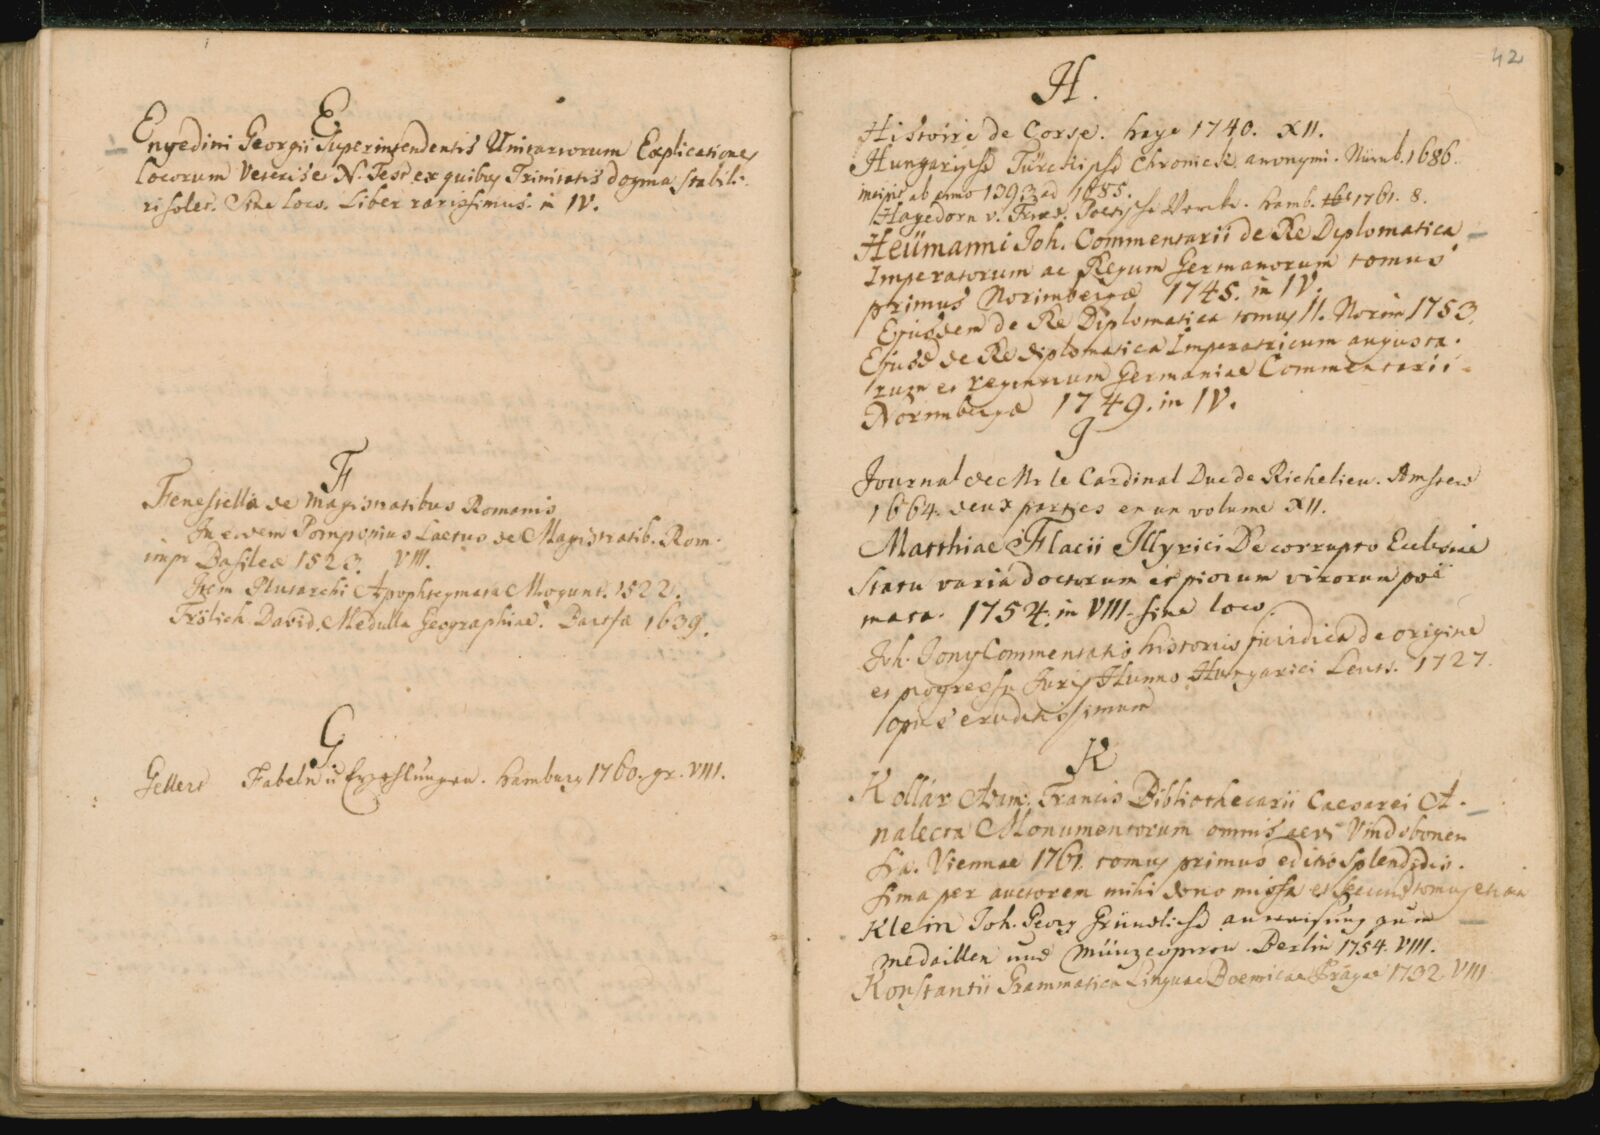 E
Enyedini Georgii Superintendentis Unitariorum Explicationes
locorum Veteris et N. Test. ex quibus Trinitatis dogma stabili-
ri solet. Sine loco. Liber rarissimus. in IV.
F
Fenestella de Magistratibus Romanis
In eodem Pomponius Laetus de Magistratib. Rom.
impr Basileae 1523. VIII.
Item Plutarchi Apophtegmata Mogunt. 1522.
Frölich David. Medulla Geographiae. Bartfae 1639.
G
Gellert Fabeln u Erzehlungen. Hamburg 1760. gr. VIII.
42
H.
Histoire de Corse. Haye 1740. XII.
Hungarische Türckische Chronick anonymi. Nürnb. 1686.
incipit ab anno 1393 ad 1685.
Hagedorn v. Fried. Poetische Werke. Hamb. 1761. 8.
Heümanni Joh. Commentarii de Re Diplomatica
Imperatorum ac Regum Germanorum tomus
primus Norimbergae 1745. in IV.
Ejusdem de Re Diplomatica tomus II. Norim 1753.
Ejusd de Re diplomatica Imperatricum augusta-
rum et reginarum Germaniae Commentarii
Norimbergae 1749. in IV.
J
Journal de Mr le Cardinal Duc de Richelieu. Amsterd
1664. deux parties en un volume XII.
Matthiae Flacii Illyrici De corrupto Ecclesiae
Statu varia doctorum et piorum virorum poë
mata. 1754. in VIII. sine loco.
Joh. Jony Commentatio historico juridica de origine
et progressu Juris Hunno Hungarici Leuts. 1727.
opus eruditissimum
K
Kollár Adam. Francis Bibliothecarii Caesarei A-
nalecta Monumentorum omnis aevi Vindobonen
sia. Viennae 1761. tomus primus editio splendidis-
sima per auctorem mihi dono missa et secund tomus etiam
Klein Joh. Georg Gründliche anweisung zum
medaillen und Münzcopiren. Berlin 1754. VIII.
Konstantii Grammatica Linguae Boemicae Pragae 1732 VIII